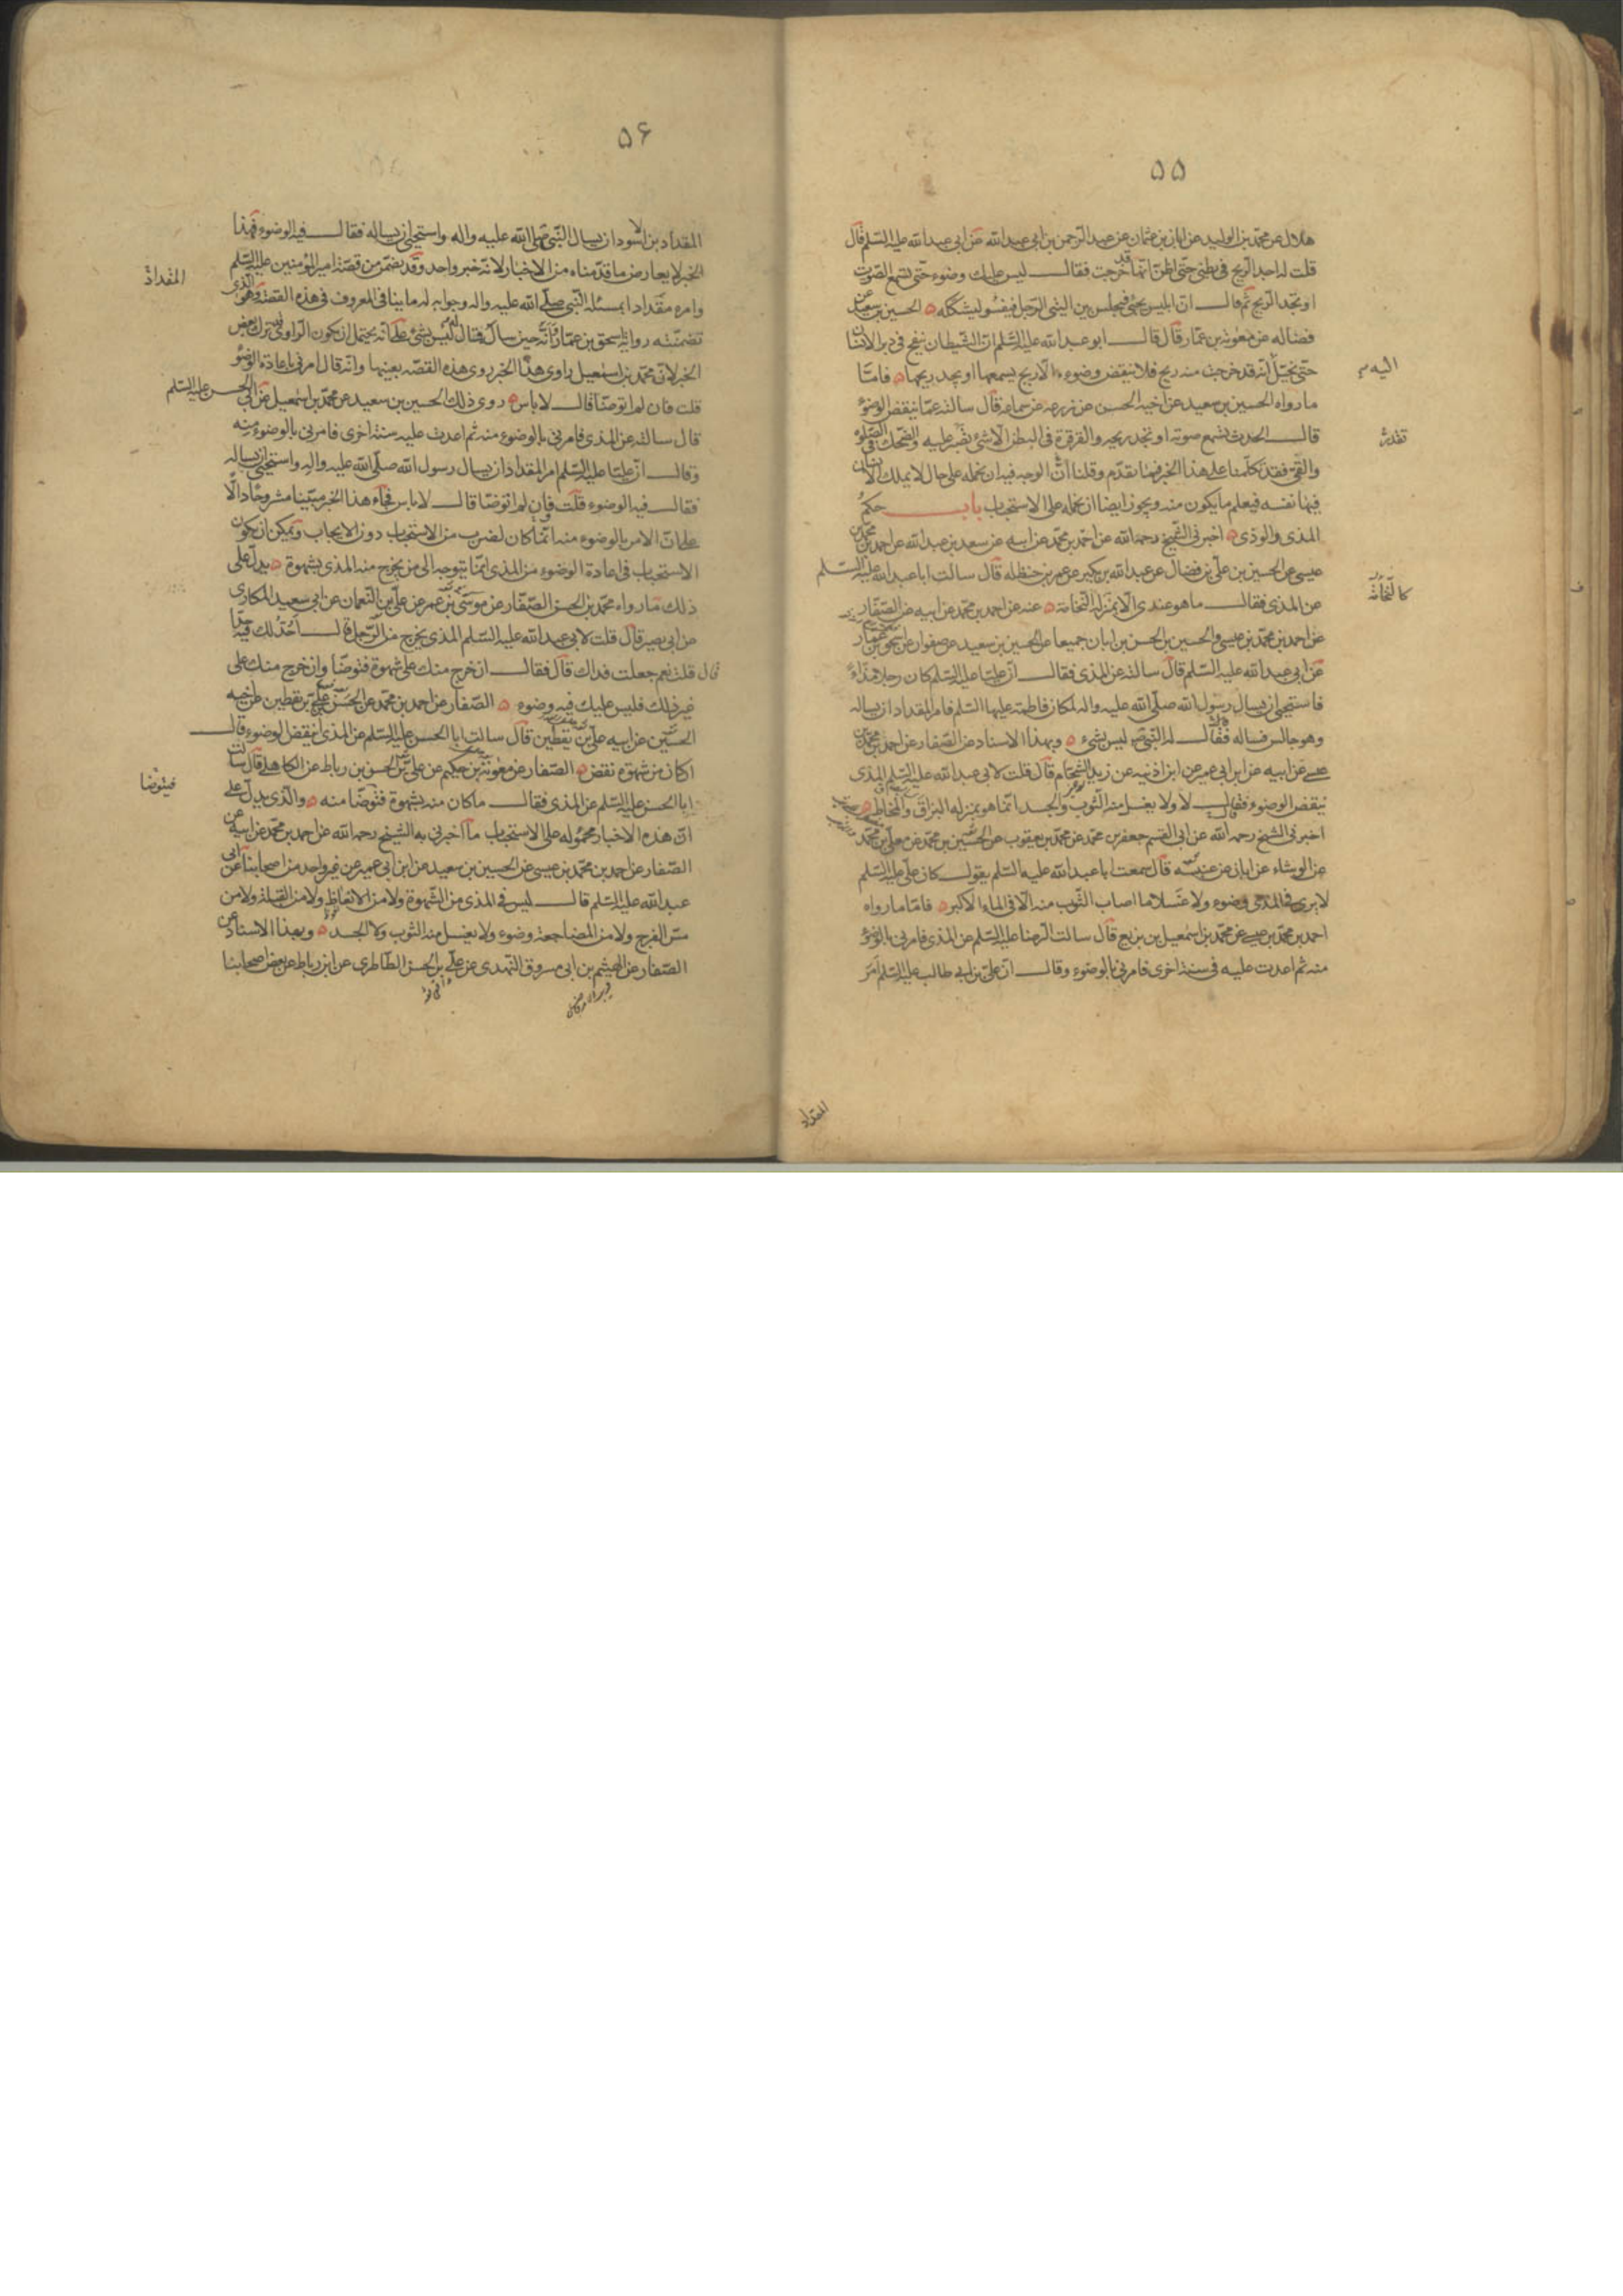 ۵۵
هلال عن محمد بن الوليد عن ابان بن عثمان عن عبد الرحمن بن ابي عبد الله عن ابي عبد الله عليه السلم قال
قلت له اجد الريح في بطني حتى اظن انها قد خرجت فقال ليس عليك وضوء حتى تسمع الصوت
او تجد الريح ثم قال ان ابليس يجئ فيجلس بين اليتى الرجل فيفسو ليشككه الحسين بن سعيد عن
فضاله عن معوية بن عمار قال قال ابو عبد الله عليه السلم ان الشيطان ينفخ في دبر الانسان
حتى يخيل اليه انه قد خرجت منه ريح فلا ينقض وضوءه الا ريح يسمعها او يجد ريحها فاما
ما رواه الحسين بن سعيد عن اخيه الحسن عن زرعه عن سماعه قال سالته عما ينقض الوضوء
قال الحدث تسمع صوته او تجد ريحه والقرقرة في البطن الا شئ تصبر عليه والضحك في الصلوة
والقئ فقد تكلمنا على هذا الخبر فيما تقدم وقلنا ان الوجه فيه ان نحمله على حال لا يملك الانسان
فيها نفسه فيعلم ما يكون منه ويجوز ايضا ان نحمله على الاستحباب باب حكم
المذى والوذى اخبرني الشيخ رحمه الله عن احمد بن محمد عن ابيه عن سعد بن عبد الله عن احمد بن محمد بن
عيسى عن الحسين بن علي بن فضال عن عبد الله بن بكير عن عمر بن حنظله قال سالت ابا عبد الله عليه السلم
عن المذى فقال ما هو عندى الا بمنزلة النخامة عنه عن احمد بن محمد عن ابيه عن الصفار
عن احمد بن محمد بن عيسى والحسين بن الحسن بن ابان جميعا عن الحسين بن سعيد عن صفوان عن اسحق بن عمار
عن ابي عبد الله عليه السلم قال سالته عن المذى فقال ان عليا عليه السلم كان رجلا مذاء
فاستحيى ان يسال رسول الله صلى الله عليه واله لمكان فاطمة عليها السلم فامر المقداد ان يساله
وهو جالس فساله فقال له النبي ص ليس بشىء وبهذا الاسناد عن الصفار عن احمد بن محمد بن
عيسى عن ابيه عن ابن ابي عمير عن ابن اذينه عن زيد الشحام قال قلت لابي عبد الله عليه السلم المذى
ينقض الوضوء فقال لا ولا يغسل منه الثوب والجسد انما هو بمنزله البزاق والمخاط
اخبرني الشيخ رحمه الله عن ابي القسم جعفر بن محمد عن محمد بن يعقوب عن الحسين بن محمد عن معلى بن محمد
عن الوشاء عن ابان عن عنبسه قال سمعت ابا عبد الله عليه السلم يقول كان علي عليه السلم
لا يرى في المذى وضوء ولا غسلا ما اصاب الثوب منه الا في الماء الاكبر فاما ما رواه
احمد بن محمد بن عيسى عن محمد بن اسمعيل بن بزيع قال سالت الرضا عليه السلم عن المذى فامرني بالوضوء
منه ثم اعدت عليه في سنة اخرى فامرني بالوضوء وقال ان علي بن ابي طالب عليه السلم امر
اليه م
تقدر
المقداد
۵۶
المقداد بن الاسود ان يسال النبي صلى الله عليه واله واستحيى ان يساله فقال فيه الوضوء فهذا
الخبر لا يعارض ما قدمناه من الاخبار لانه خبر واحد وقد تضمن من قصة امير المؤمنين عليه السلم
وامره مقدادا بمسئلة النبي صلى الله عليه واله وجوابه له ما ينافي المعروف في هذه القصة وهو الذى
تضمنته رواية اسحق بن عمار وانه حين سال فقال له ليس بشئ على انه يحتمل ان يكون الراوى ترك بعض
الخبر لان محمد بن اسمعيل راوى هذا الخبر روى هذه القصه بعينها وانه قال امرني باعادة الوضوء
قلت فان لم اتوضا قال لا باس روى ذلك الحسين بن سعيد عن محمد بن اسمعيل عن ابي الحسن عليه السلم
قال سالته عن المذى فامرني بالوضوء منه ثم اعدت عليه سنة اخرى فامرني بالوضوء منه
وقال ان عليا عليه السلم امر المقداد ان يسال رسول الله صلى الله عليه واله واستحيى ان يساله
فقال فيه الوضوء قلت فان لم اتوضا قال لا باس فجاء هذا الخبر مبينا مشروحا دالا
على ان الامر بالوضوء منه انما كان لضرب من الاستحباب دون الايجاب ويمكن ان يكون
الاستحباب في اعادة الوضوء من المذى انما يتوجه الى من يخرج منه المذى بشهوة يدل على
ذلك ما رواه محمد بن الحسن الصفار عن موسى بن عمر عن علي بن النعمان عن ابي سعيد المكارى
عن ابي بصير قال قلت لابي عبد الله عليه السلم المذى يخرج من الرجل قال احد لك فيه حدا
قال قلت نعم جعلت فداك قال فقال ان خرج منك على شهوة فتوضا وان خرج منك على
غير ذلك فليس عليك فيه وضوء الصفار عن احمد بن محمد عن الحسن بن علي بن يقطين عن اخيه
الحسين عن ابيه علي بن يقطين قال سالت ابا الحسن عليه السلم عن المذى اينقض الوضوء قال
ان كان من شهوة نقض الصفار عن معوية بن حكيم عن علي بن الحسن بن رباط عن الكاهلي قال سالت
ابا الحسن عليه السلم عن المذى فقال ما كان منه بشهوة فتوضا منه والذى يدل على
ان هذه الاخبار محموله على الاستحباب ما اخبرني به الشيخ رحمه الله عن احمد بن محمد عن ابيه عن
الصفار عن احمد بن محمد بن عيسى عن الحسين بن سعيد عن ابن ابي عمير عن غير واحد من اصحابنا عن ابي
عبد الله عليه السلم قال ليس في المذى من الشهوة ولا من الانعاظ ولا من القبلة ولا من
مس الفرج ولا من المضاجعة وضوء ولا يغسل منه الثوب ولا الجسد وبهذا الاسناد عن
الصفار عن الهيثم بن ابي مسروق النهدى عن علي بن الحسن الطاطرى عن ابن رباط عن بعض اصحابنا
المقداد
فيتوضا